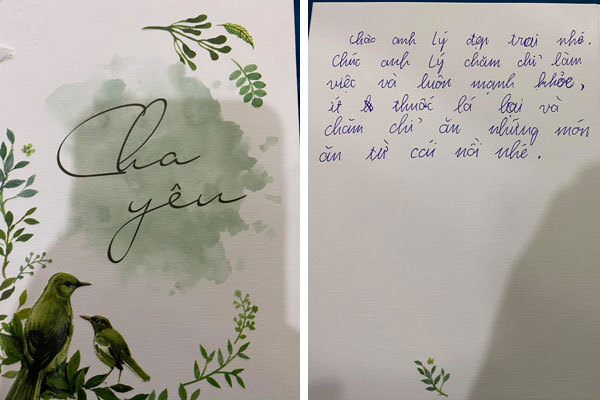 Cha
yêu
Chào anh Lý đẹp trai nhé.
Chúc anh Lý chăm chỉ làm
việc và luôn mạnh khỏe,
ít thuốc lá lại và
chăm chỉ ăn những món
ăn từ cái nồi nhé.